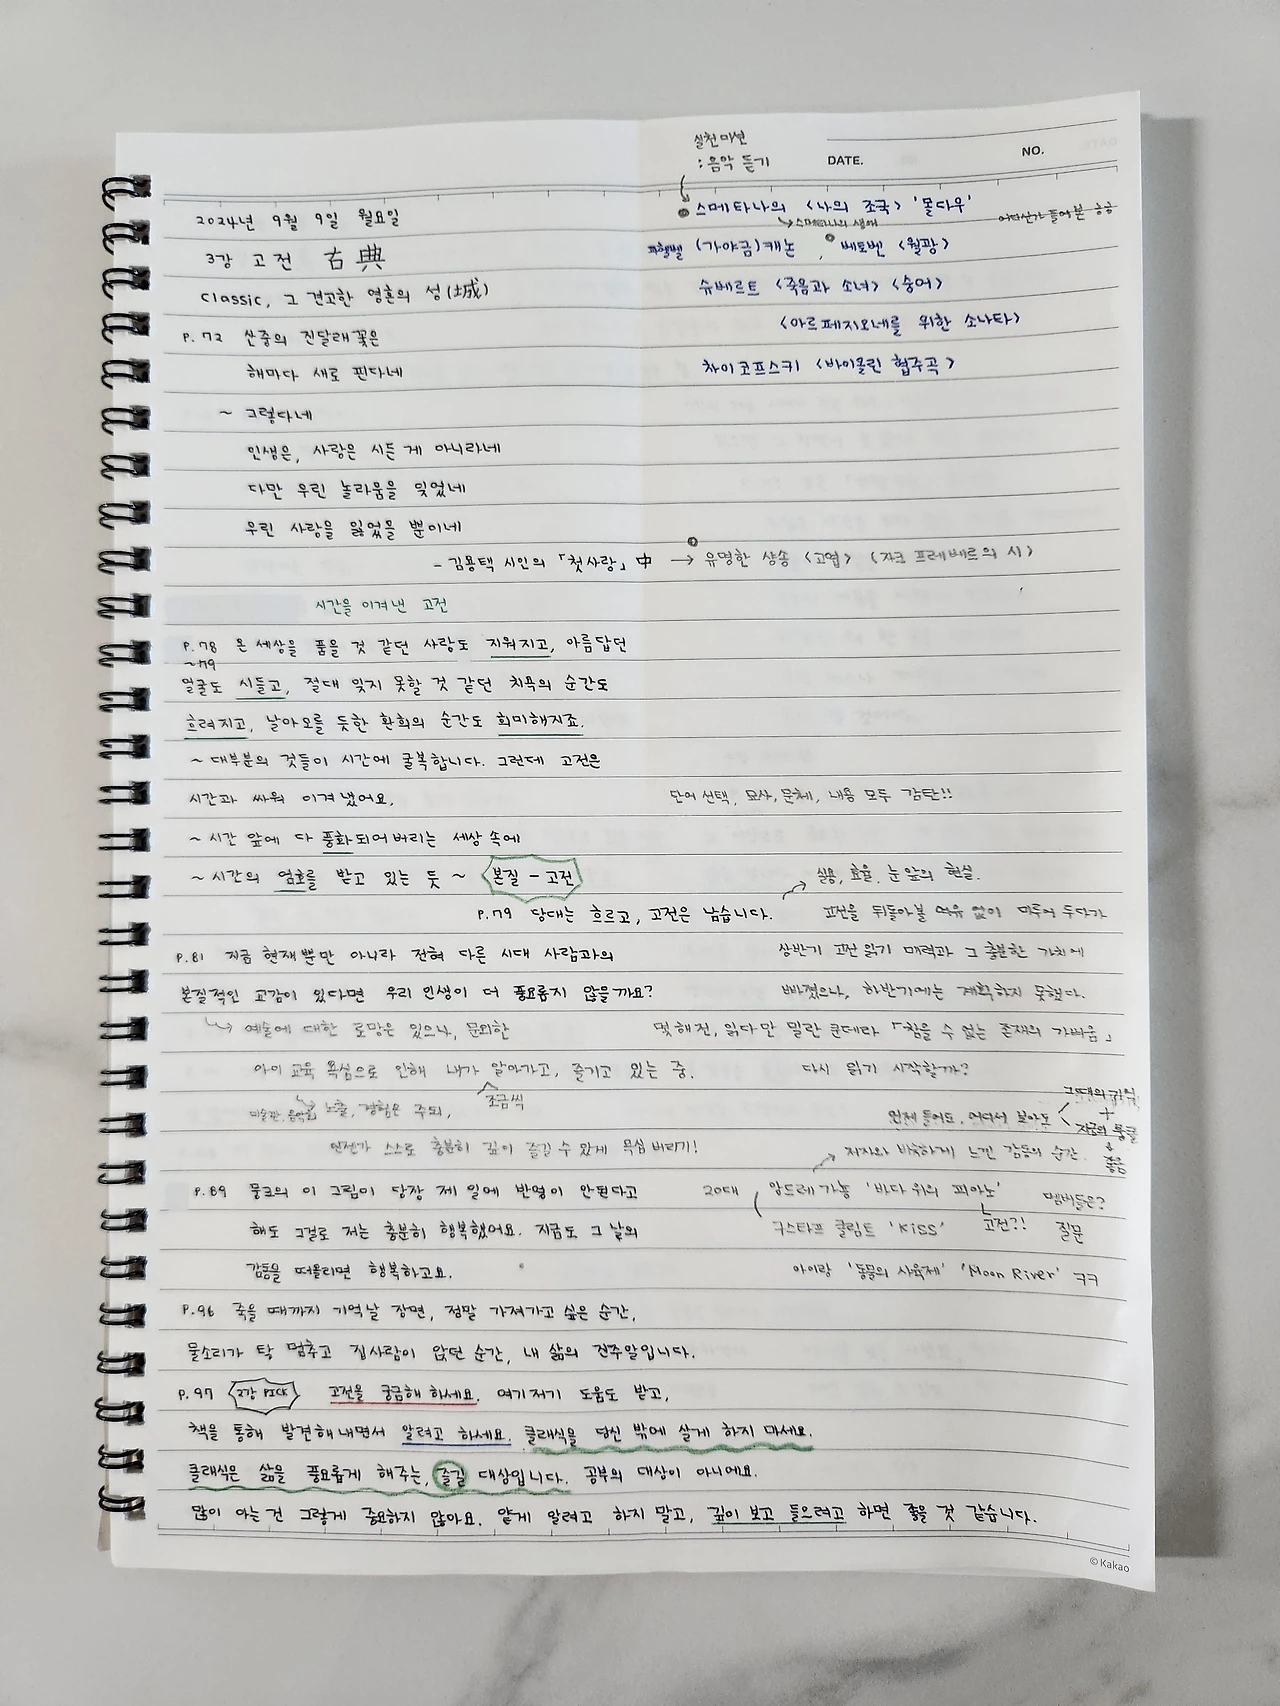 실천미션
: 음악 듣기
DATE.
NO.
2024년 9월 9일 월요일
스메타나의 <나의 조국> '몰다우'
→ 스메타나의 생애
어디선가 들어본
3강 고전 古典
파헬벨 (가야금)캐논, 베토벤 <월광>
classic, 그 견고한 영혼의 성(城)
슈베르트 <죽음과 소녀> <숭어>
<아르페지오네를 위한 소나타>
P.72 산중의 진달래꽃은
차이코프스키 <바이올린 협주곡>
해마다 새로 핀다네
~ 그렇다네
인생은, 사랑은 시든 게 아니라네
다만 우린 놀라움을 잊었네
우린 사랑을 잃었을 뿐이네
- 김용택 시인의 「첫사랑」 中 → 유명한 샹송 <고엽> (자크 프레베르의 시)
시간을 이겨낸 고전
P.78 온 세상을 품을 것 같던 사랑도 지워지고, 아름답던
~79
얼굴도 시들고, 절대 잊지 못할 것 같던 치욕의 순간도
흐려지고, 날아오를 듯한 환희의 순간도 희미해지죠.
~ 대부분의 것들이 시간에 굴복합니다. 그런데 고전은
시간과 싸워 이겨냈어요.
단어 선택, 묘사, 문체, 내용 모두 감탄!!
~ 시간 앞에 다 풍화되어버리는 세상 속에
~ 시간의 엄호를 받고 있는 듯 ~ 본질 - 고전
실용, 효율, 눈 앞의 현실.
P.79 당대는 흐르고, 고전은 남습니다.
고전을 뒤돌아볼 여유 없이 미루어 두다가
P.81 지금 현재뿐만 아니라 전혀 다른 시대 사람과의
상반기 고전 읽기 매력과 그 충분한 가치에
본질적인 교감이 있다면 우리 인생이 더 풍요롭지 않을까요?
빠졌으나, 하반기에는 계획하지 못했다.
↳ 예술에 대한 로망은 있으나, 문외한
몇 해 전, 읽다 만 밀란 쿤데라 「참을 수 없는 존재의 가벼움」
아이 교육 욕심으로 인해 내가 알아가고, 즐기고 있는 중.
조금씩
다시 읽기 시작할까?
미술관, 음악회 노출, 경험은 주되,
언제 들어도, 어디서 보아도
그때의 기억
+
지금의 뭉클
↓
좋음
언젠가 스스로 충분히 깊이 즐길 수 있게 욕심 버리기!
저자와 비슷하게 느낀 감동의 순간
P.89 뭉크의 이 그림이 당장 제 일에 반영이 안된다고
20대 앙드레 가뇽 '바다 위의 피아노'
멤버들은?
해도 그걸로 저는 충분히 행복했어요. 지금도 그 날의
구스타프 클림트 'KISS' 고전?!
질문
감동을 떠올리면 행복하고요.
아이랑 '동물의 사육제' 'Moon River' ㅋㅋ
P.96 죽을 때까지 기억날 장면, 정말 가져가고 싶은 순간,
물소리가 탁 멈추고 집사람이 앉던 순간, 내 삶의 전주알입니다.
P.97 3강 PICK 고전을 궁금해 하세요. 여기저기 도움도 받고,
책을 통해 발견해내면서 알려고 하세요. 클래식을 당신 밖에 살게 하지 마세요.
클래식은 삶을 풍요롭게 해주는, 즐길 대상입니다. 공부의 대상이 아니에요.
많이 아는 건 그렇게 중요하지 않아요. 얕게 알려고 하지 말고, 깊이 보고 들으려고 하면 좋을 것 같습니다.
© Kakao